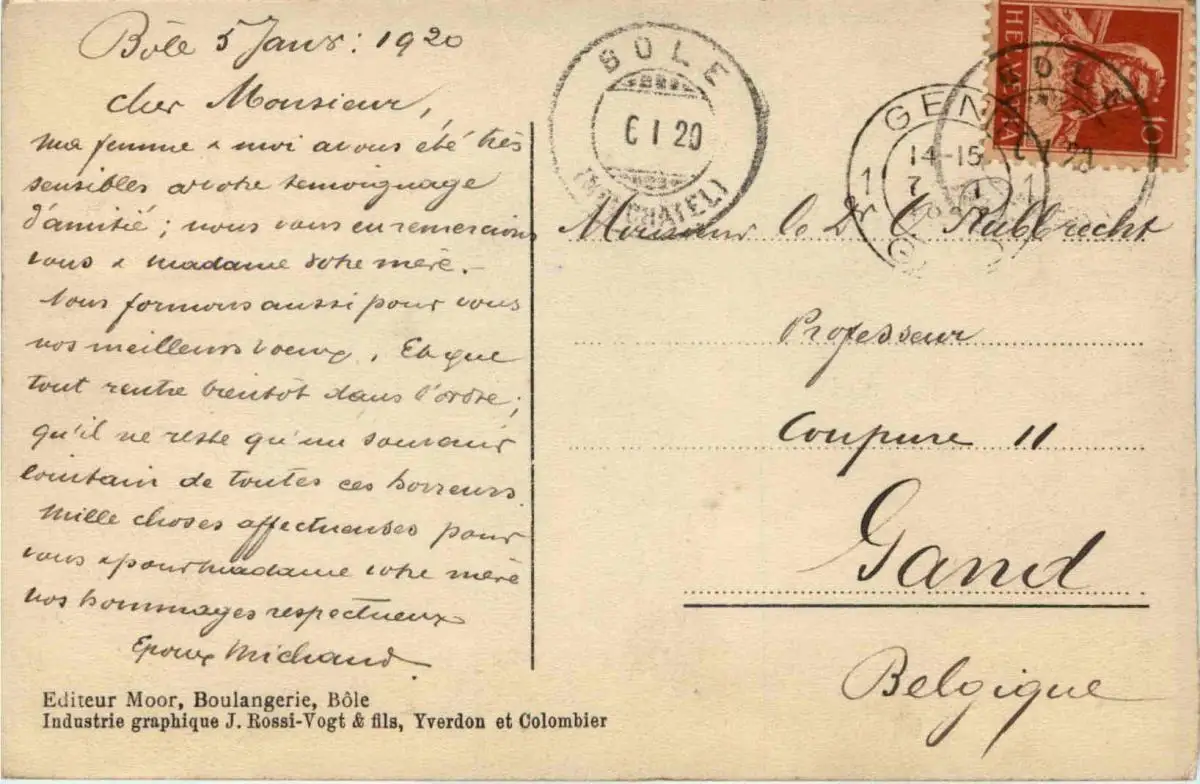 Bôle 5 Janv: 1920
Cher Monsieur,
ma femme & moi avons été très
sensibles a votre temoignage
d'amitié; nous vous en remercions
vous & madame votre mère.-
Nous formons aussi pour vous
nos meilleurs voeux. Et que
tout rentre bientôt dans l'ordre;
qu'il ne reste qu'un souvenir
lointain de toutes ces horreurs.
Mille choses affectueuses pour
vous & pour madame votre mère
nos hommages respectueux
Epoux Michaud
Editeur Moor, Boulangerie, Bôle
Industrie graphique J. Rossi-Vogt & fils, Yverdon et Colombier
BOLE
6 I 20
(NEUCHATEL)
HELVETIA
10
BOLE
GEN
14-15
1 7 I 1
Monsieur le Dr C. Rubbrecht
Professeur
Coupure 11
Gand
Belgique